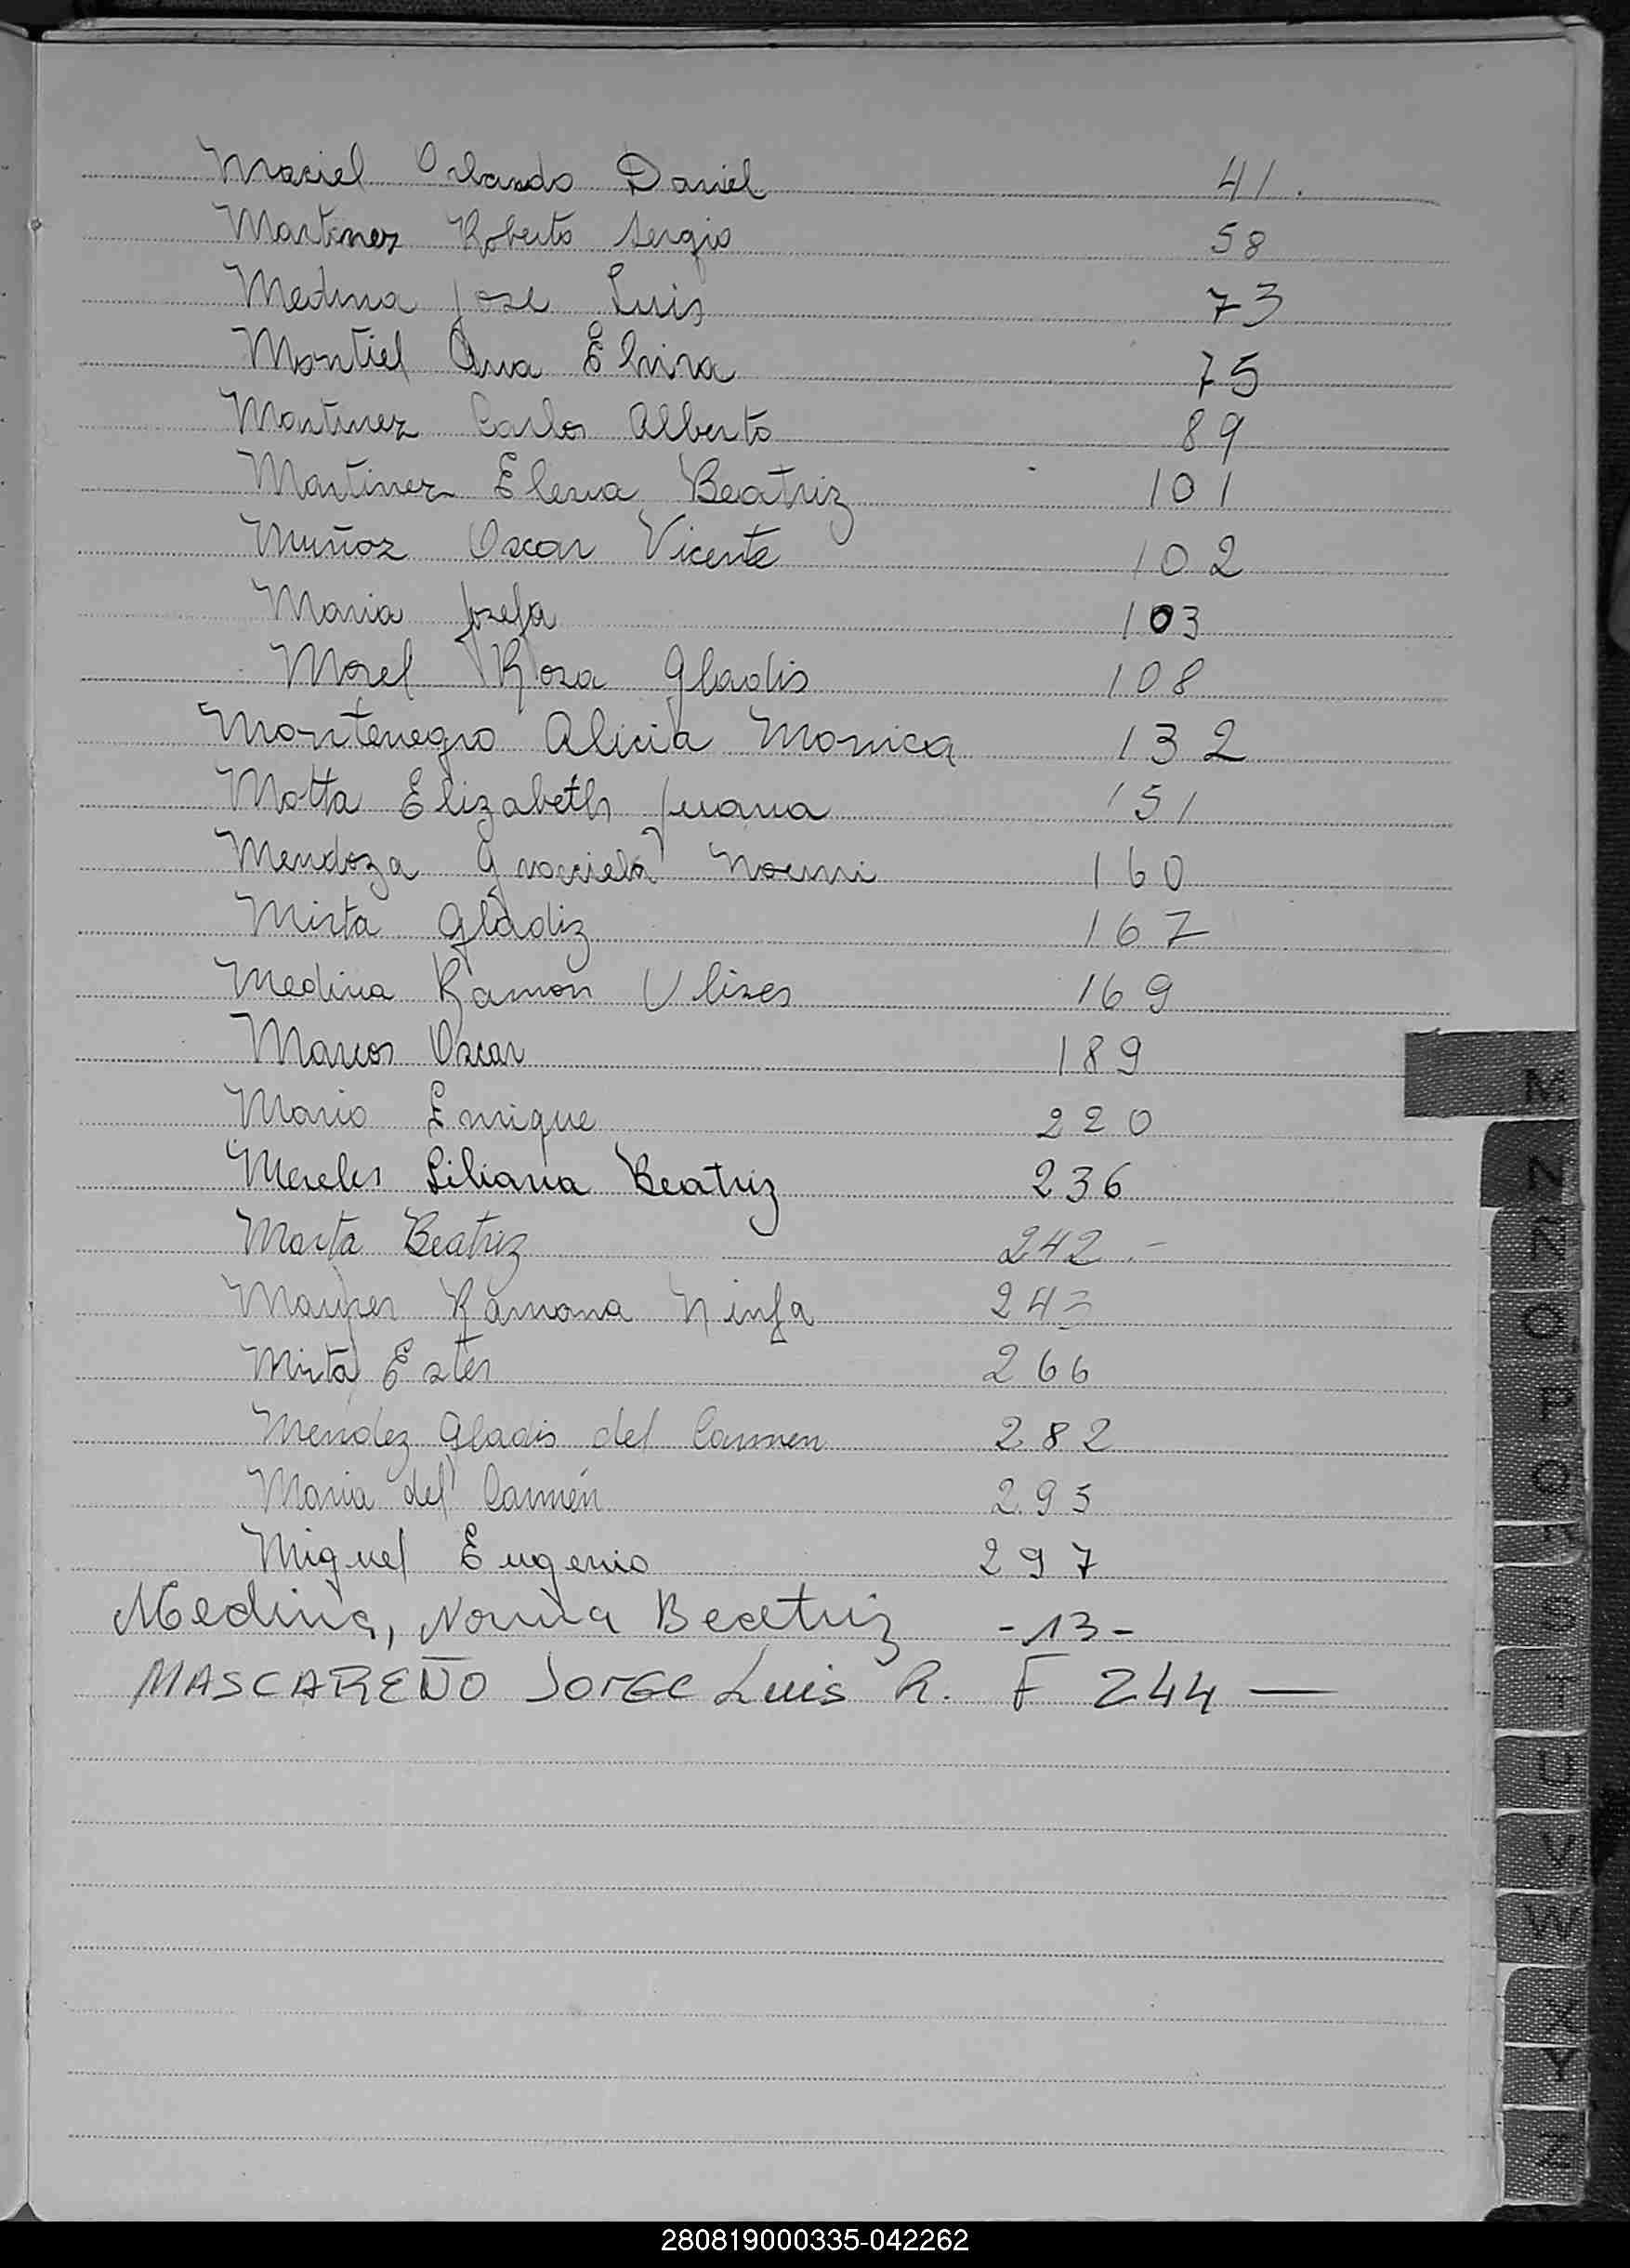 Maciel Orlando Daniel 41.
Martinez Roberto Sergio 58
Medina Jose Luis 73
Montiel Ana Elvira 75
Martinez Carlos Alberto 89
Martinez Elena Beatriz 101
Muñoz Oscar Vicente 102
Maria Josefa 103
Morel Rosa Gladis 108
Montenegro Alicia Monica 132
Motta Elizabeth Juana 151
Mendoza Gracciela Noemi 160
Mirta Gladiz 167
Medina Ramon Ulises 169
Marcos Oscar 189
Mario Enrique 220
Mereles Liliana Beatriz 236
Marta Beatriz 242.-
Ramona Ninfa 243
Mirta Ester 266
Mendez Gladis del Carmen 282
Maria del Carmen 295
Miguel Eugenio 297
Medina, Norma Beatriz -13-
MASCAREÑO Jorge Luis R. F 244 —
M
N
Ñ
O
P
Q
R
S
T
U
V
W
X
Y
Z
280819000335-042262